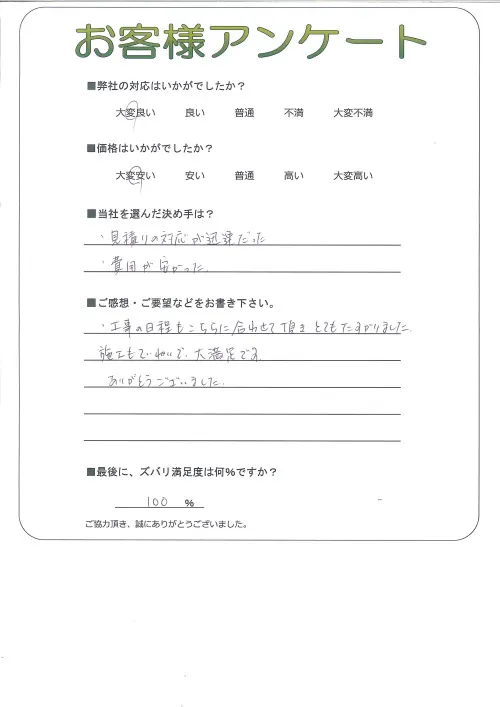 お客様アンケート
■弊社の対応はいかがでしたか？
大変良い　良い　普通　不満　大変不満
■価格はいかがでしたか？
大変安い　安い　普通　高い　大変高い
■当社を選んだ決め手は？
・見積りの対応が迅速だった
・費用が安かった。
■ご感想・ご要望などをお書き下さい。
・工事の日程もこちらに合わせて頂き とてもたすかりました。
施工もていねいで、大満足です。
ありがとうございました。
■最後に、ズバリ満足度は何％ですか？
100 %
ご協力頂き、誠にありがとうございました。